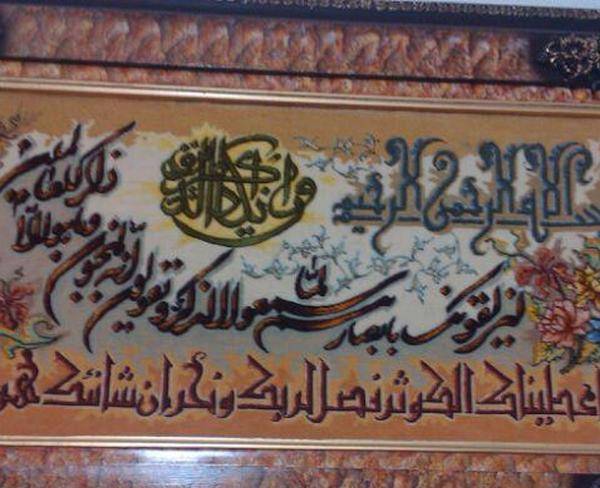 الله الرحمن الرحيم
وان يكاد الذين كفروا
ليزلقونك بابصارهم لما سمعوا الذكر و يقولون انه لمجنون وما هو الا ذكر للعالمين
اعطيناك الكوثر فصل لربك ونحر ان شانئك هو